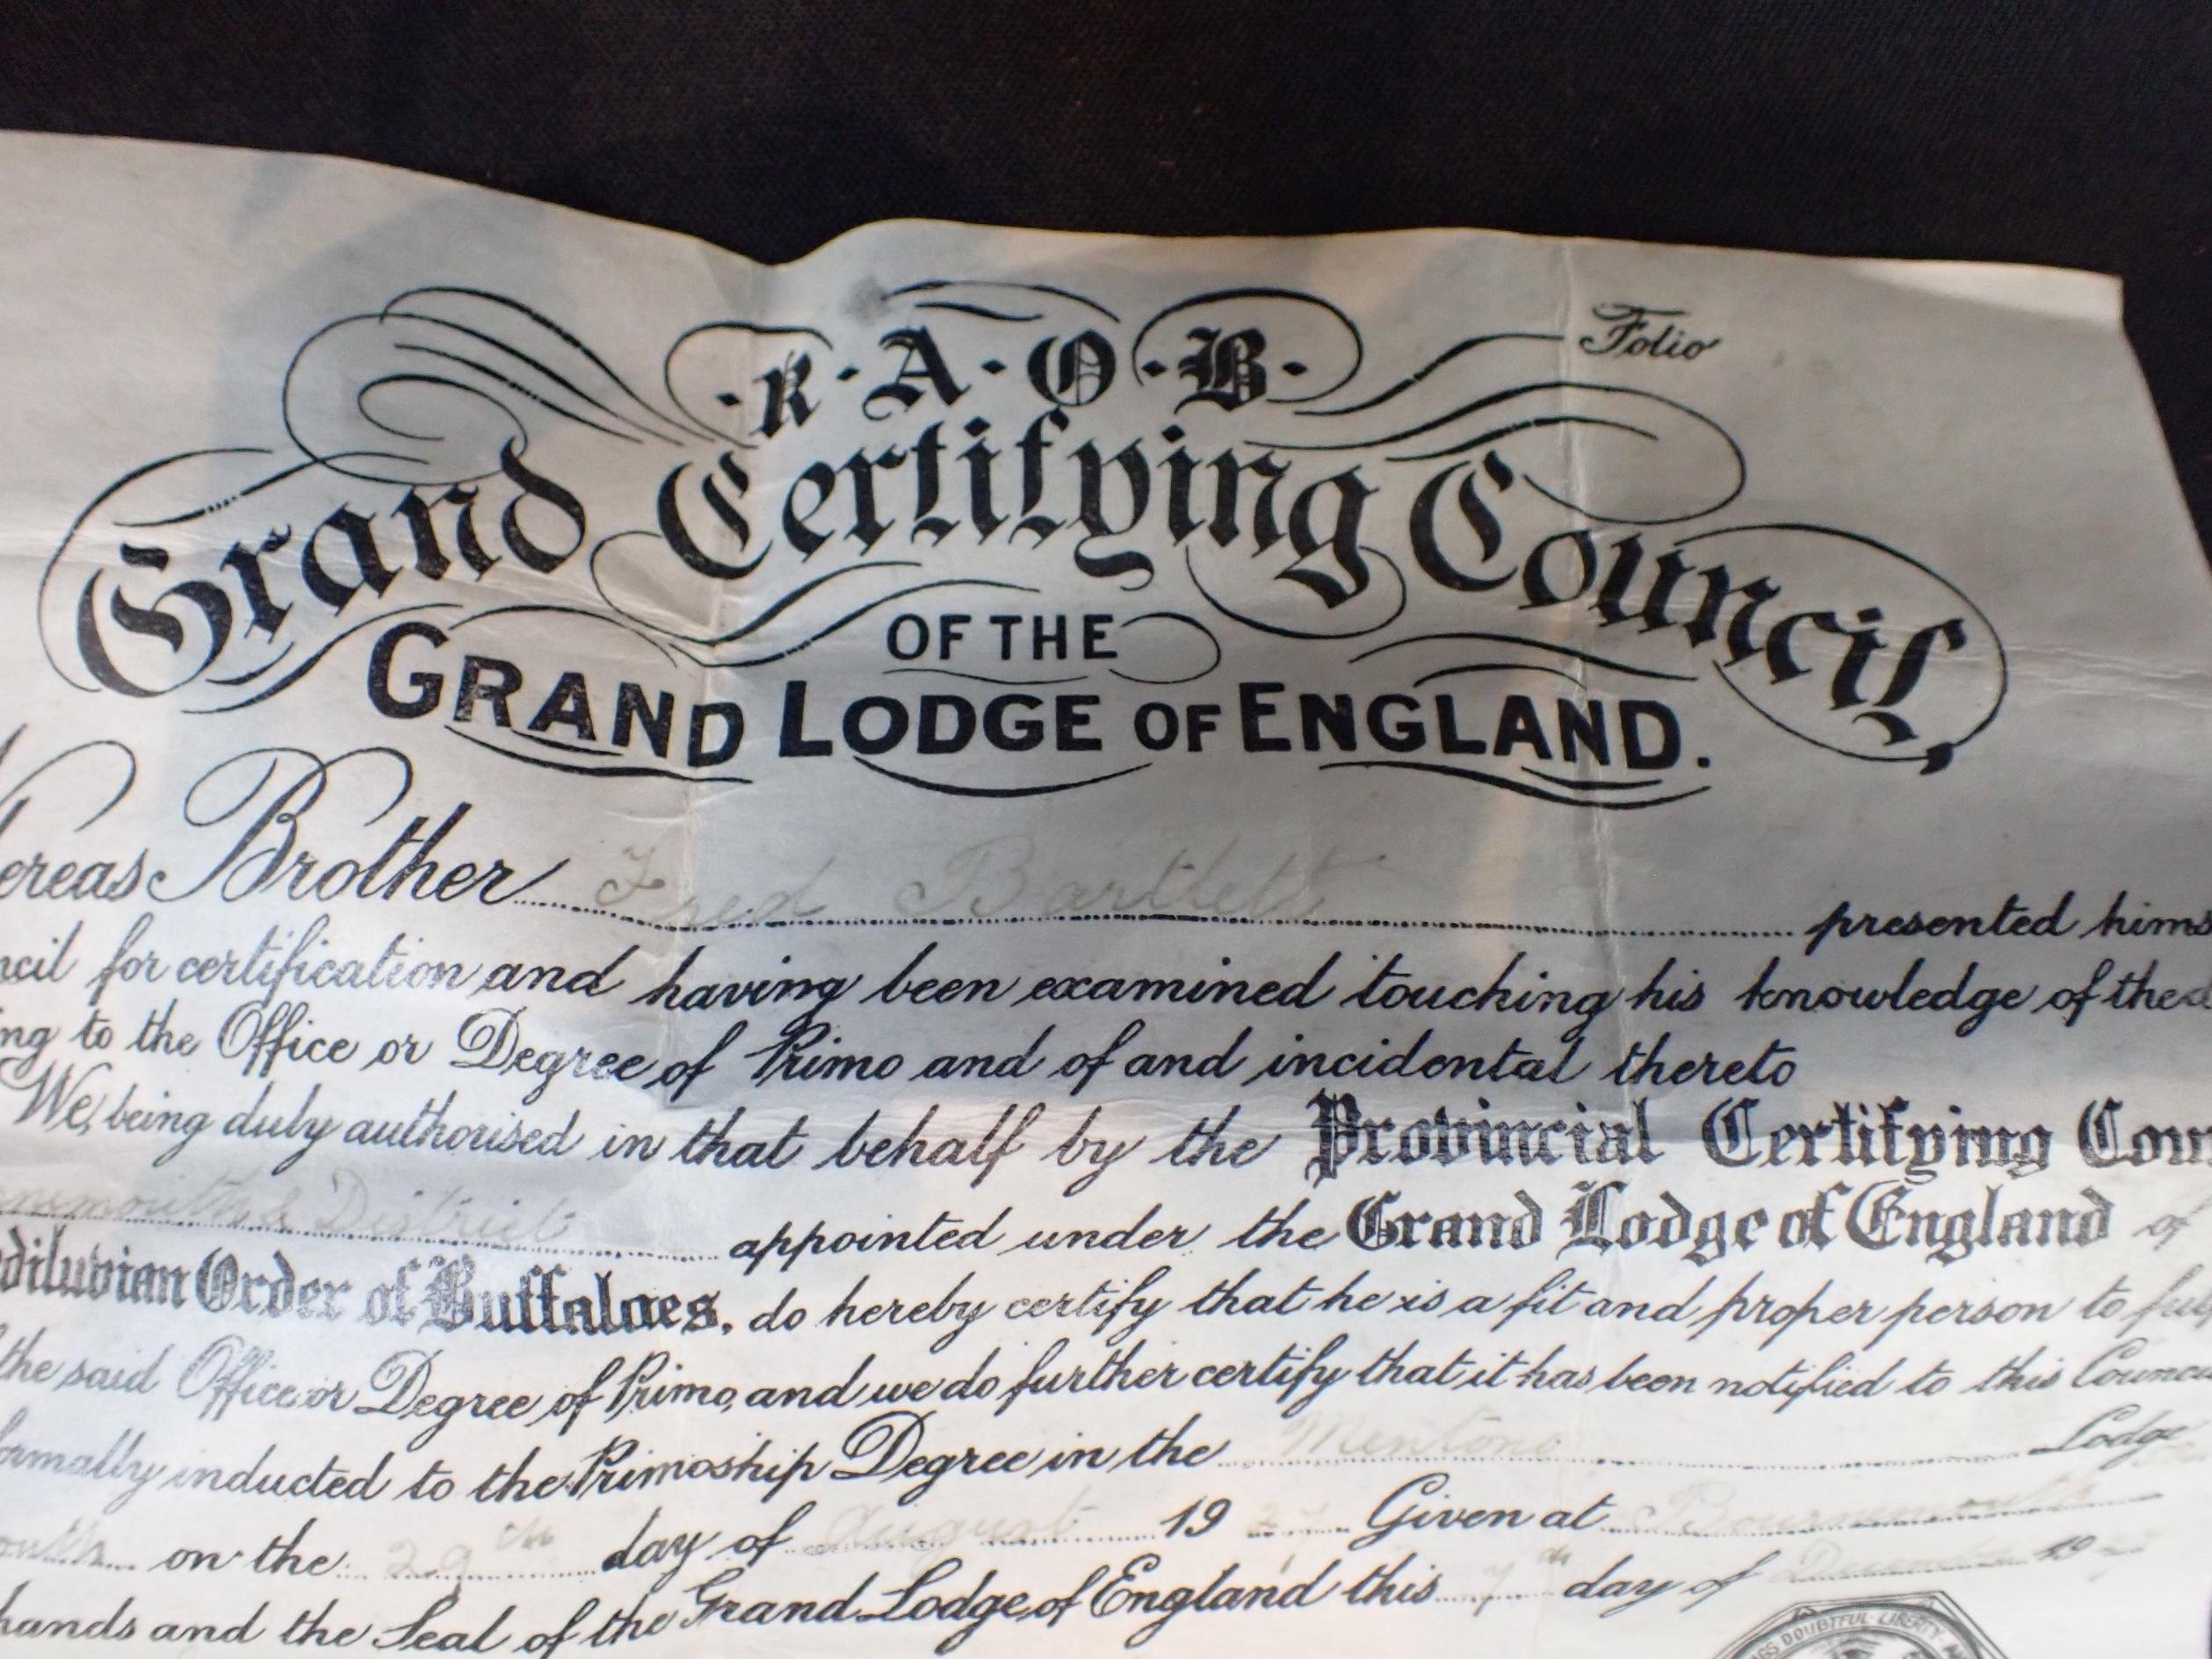 · R · A · O · B ·
Folio
Grand Certifying Council
OF THE
GRAND LODGE OF ENGLAND.
ereas Brother Fred Bartlett presented hims
ncil for certification and having been examined touching his knowledge of the d
ng to the Office or Degree of Primo and of and incidental thereto
We, being duly authorised in that behalf by the Provincial Certifying Coun
rnemouth & District appointed under the Grand Lodge of England of
diluvian Order of Buffaloes, do hereby certify that he is a fit and proper person to ful
the said Office or Degree of Primo, and we do further certify that it has been notified to this Counci
ormally inducted to the Primoship Degree in the Mentone Lodge
outh on the 29th day of August 19 27 Given at Bournemouth
hands and the Seal of the Grand Lodge of England this 7th day of December 19
DOUBTFUL LIBERTY